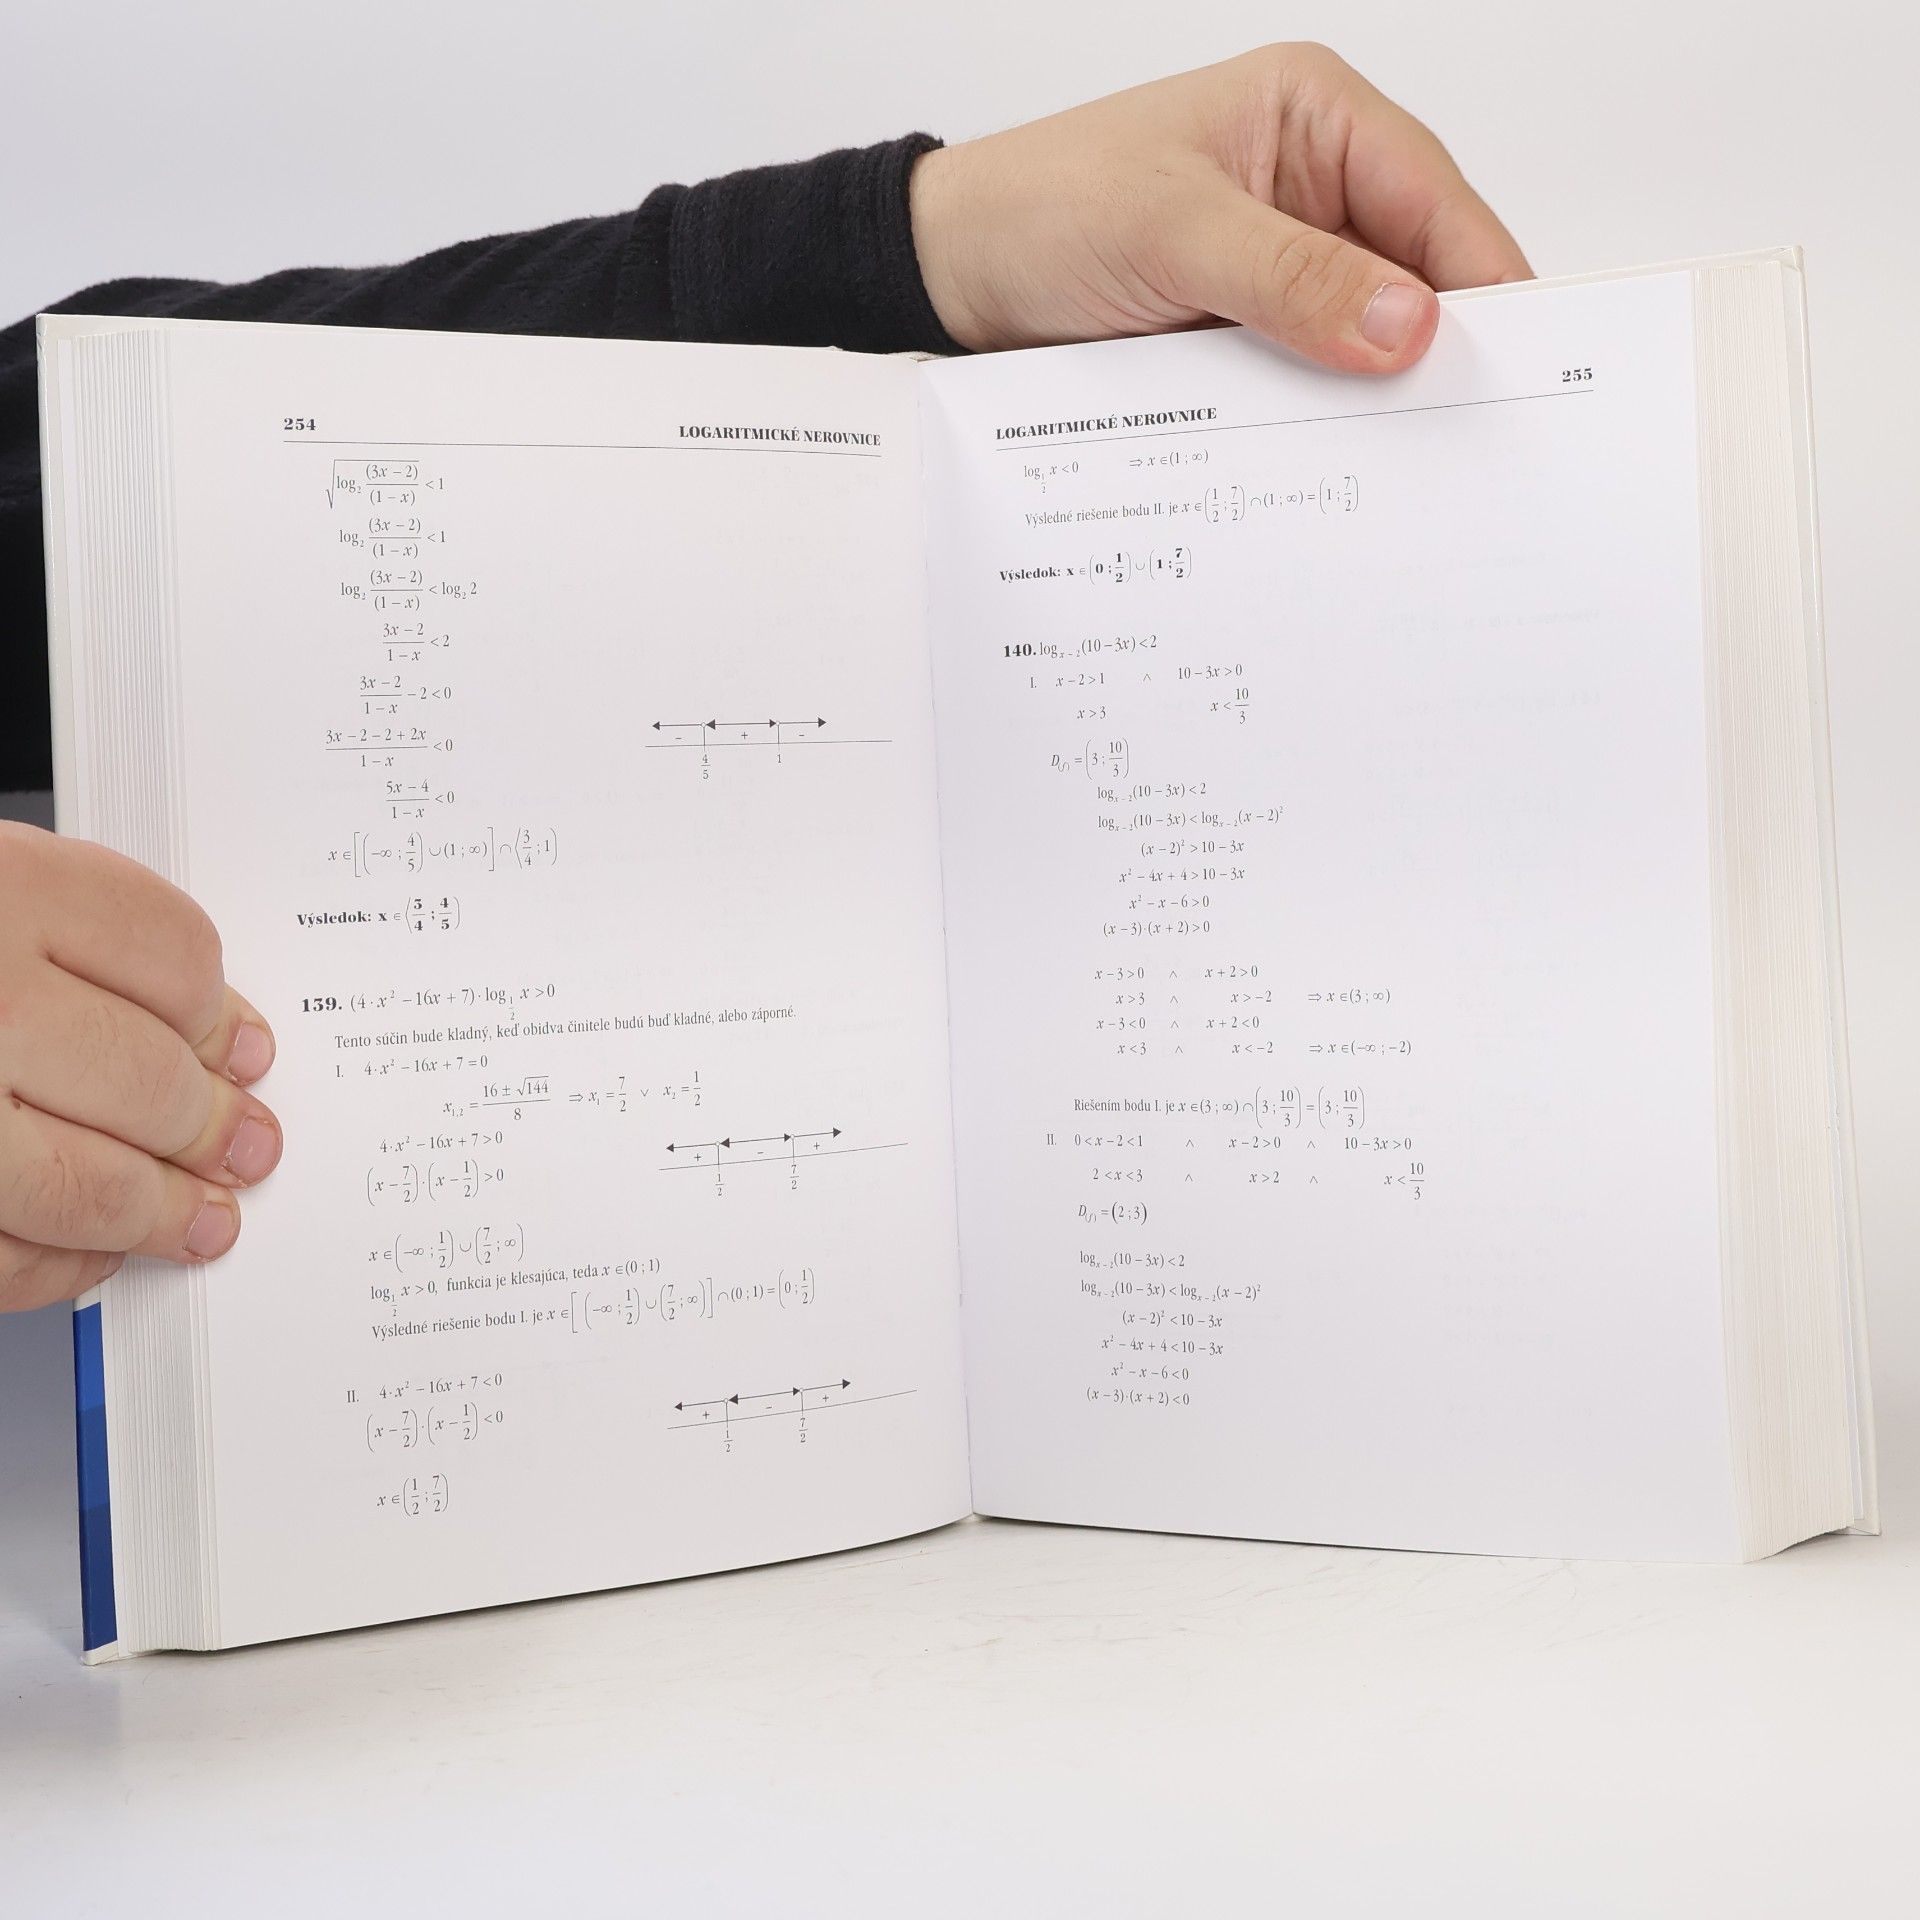 254 LOGARITMICKÉ NEROVNICE
√(log₂ (3x – 2)/(1 – x)) < 1
log₂ (3x – 2)/(1 – x) < 1
log₂ (3x – 2)/(1 – x) < log₂ 2
(3x – 2)/(1 – x) < 2
(3x – 2)/(1 – x) – 2 < 0
(3x – 2 – 2 + 2x)/(1 – x) < 0
– + –
4/5 1
(5x – 4)/(1 – x) < 0
x ∈ [(–∞ ; 4/5) ∪ (1 ; ∞)] ∩ ⟨3/4 ; 1)
Výsledok: x ∈ ⟨3/4 ; 4/5)
139. (4·x² – 16x + 7)·log_{1/2} x > 0
Tento súčin bude kladný, keď obidva činitele budú buď kladné, alebo záporné.
I. 4·x² – 16x + 7 = 0
x₁,₂ = (16 ± √144)/8 ⇒ x₁ = 7/2 ∨ x₂ = 1/2
4·x² – 16x + 7 > 0
(x – 7/2)·(x – 1/2) > 0
+ – +
1/2 7/2
x ∈ (–∞ ; 1/2) ∪ (7/2 ; ∞)
log_{1/2} x > 0, funkcia je klesajúca, teda x ∈ (0 ; 1)
Výsledné riešenie bodu I. je x ∈ [(–∞ ; 1/2) ∪ (7/2 ; ∞)] ∩ (0 ; 1) = (0 ; 1/2)
II. 4·x² – 16x + 7 < 0
(x – 7/2)·(x – 1/2) < 0
+ – +
1/2 7/2
x ∈ (1/2 ; 7/2)
LOGARITMICKÉ NEROVNICE 255
log_{1/2} x < 0 ⇒ x ∈ (1 ; ∞)
Výsledné riešenie bodu II. je x ∈ (1/2 ; 7/2) ∩ (1 ; ∞) = (1 ; 7/2)
Výsledok: x ∈ (0 ; 1/2) ∪ (1 ; 7/2)
140. log_{x – 2}(10 – 3x) < 2
I. x – 2 > 1 ∧ 10 – 3x > 0
x > 3 x < 10/3
D_(f) = (3 ; 10/3)
log_{x – 2}(10 – 3x) < 2
log_{x – 2}(10 – 3x) < log_{x – 2}(x – 2)²
(x – 2)² > 10 – 3x
x² – 4x + 4 > 10 – 3x
x² – x – 6 > 0
(x – 3)·(x + 2) > 0
x – 3 > 0 ∧ x + 2 > 0
x > 3 ∧ x > –2 ⇒ x ∈ (3 ; ∞)
x – 3 < 0 ∧ x + 2 < 0
x < 3 ∧ x < –2 ⇒ x ∈ (–∞ ; –2)
Riešením bodu I. je x ∈ (3 ; ∞) ∩ (3 ; 10/3) = (3 ; 10/3)
II. 0 < x – 2 < 1 ∧ x – 2 > 0 ∧ 10 – 3x > 0
2 < x < 3 ∧ x > 2 ∧ x < 10/3
D_(f) = (2 ; 3)
log_{x – 2}(10 – 3x) < 2
log_{x – 2}(10 – 3x) < log_{x – 2}(x – 2)²
(x – 2)² < 10 – 3x
x² – 4x + 4 < 10 – 3x
x² – x – 6 < 0
(x – 3)·(x + 2) < 0